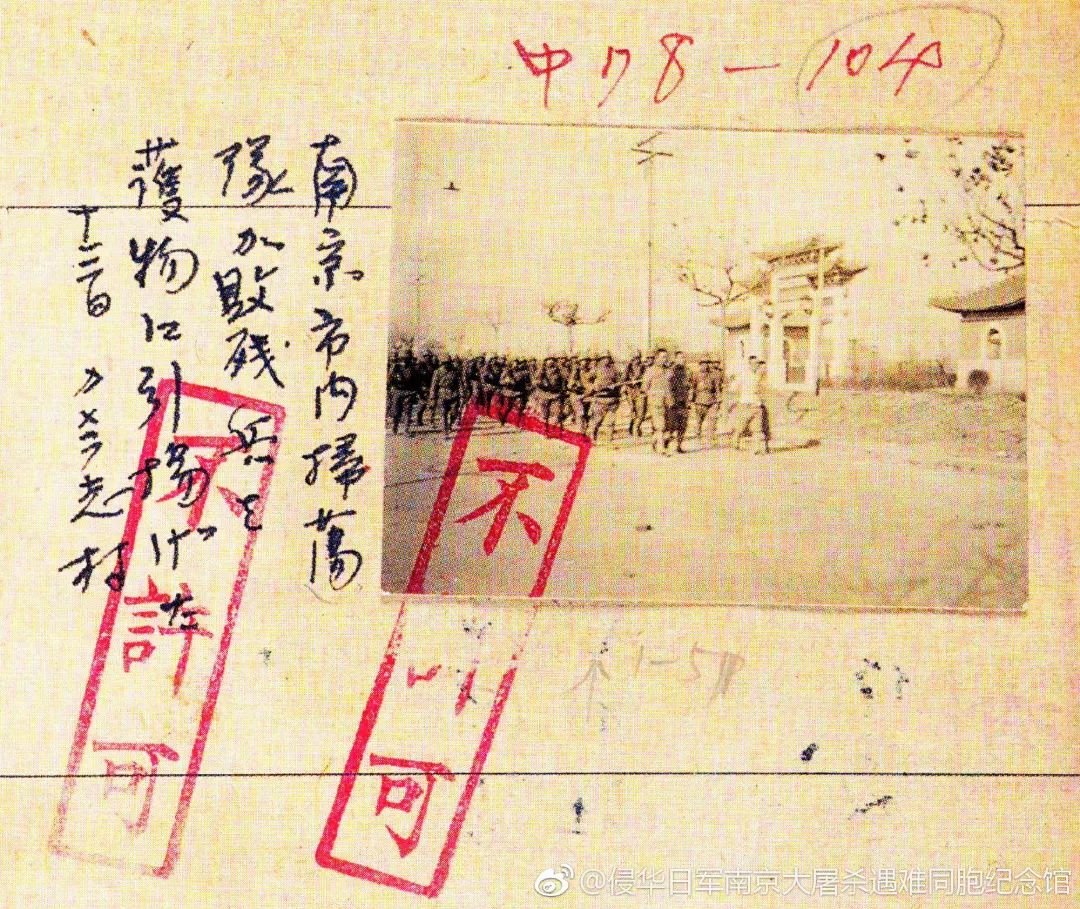 中178-104
南京市内掃蕩
隊が敗残兵を
獲物に引揚げた
志村
不許可
不 可
1-5
@侵华日军南京大屠杀遇难同胞纪念馆